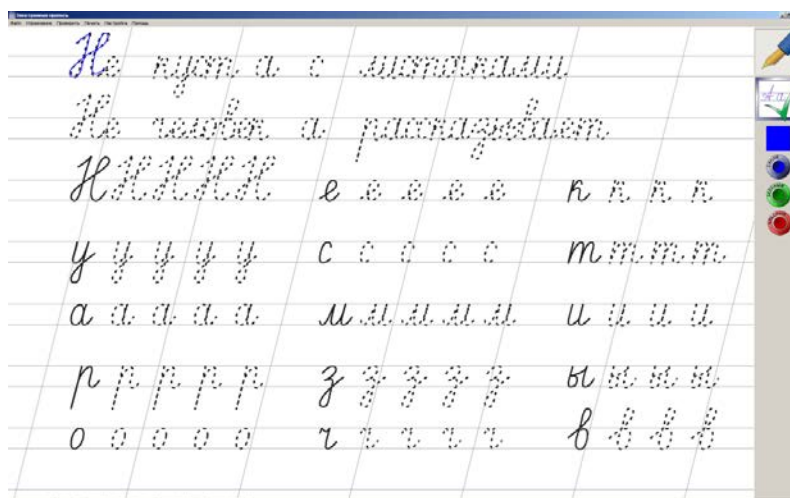 Электронная пропись
Файл Управление Проверить Печать Настройка Помощь
Не куст а с листочками
Не человек а рассказывает
Н Н Н Н Н е е е е е к к к к
у у у у у с с с с с т т т т
а а а а а м м м м м и и и и
р р р р р з з з з з ы ы ы ы
о о о о о ч ч ч ч ч в в в в